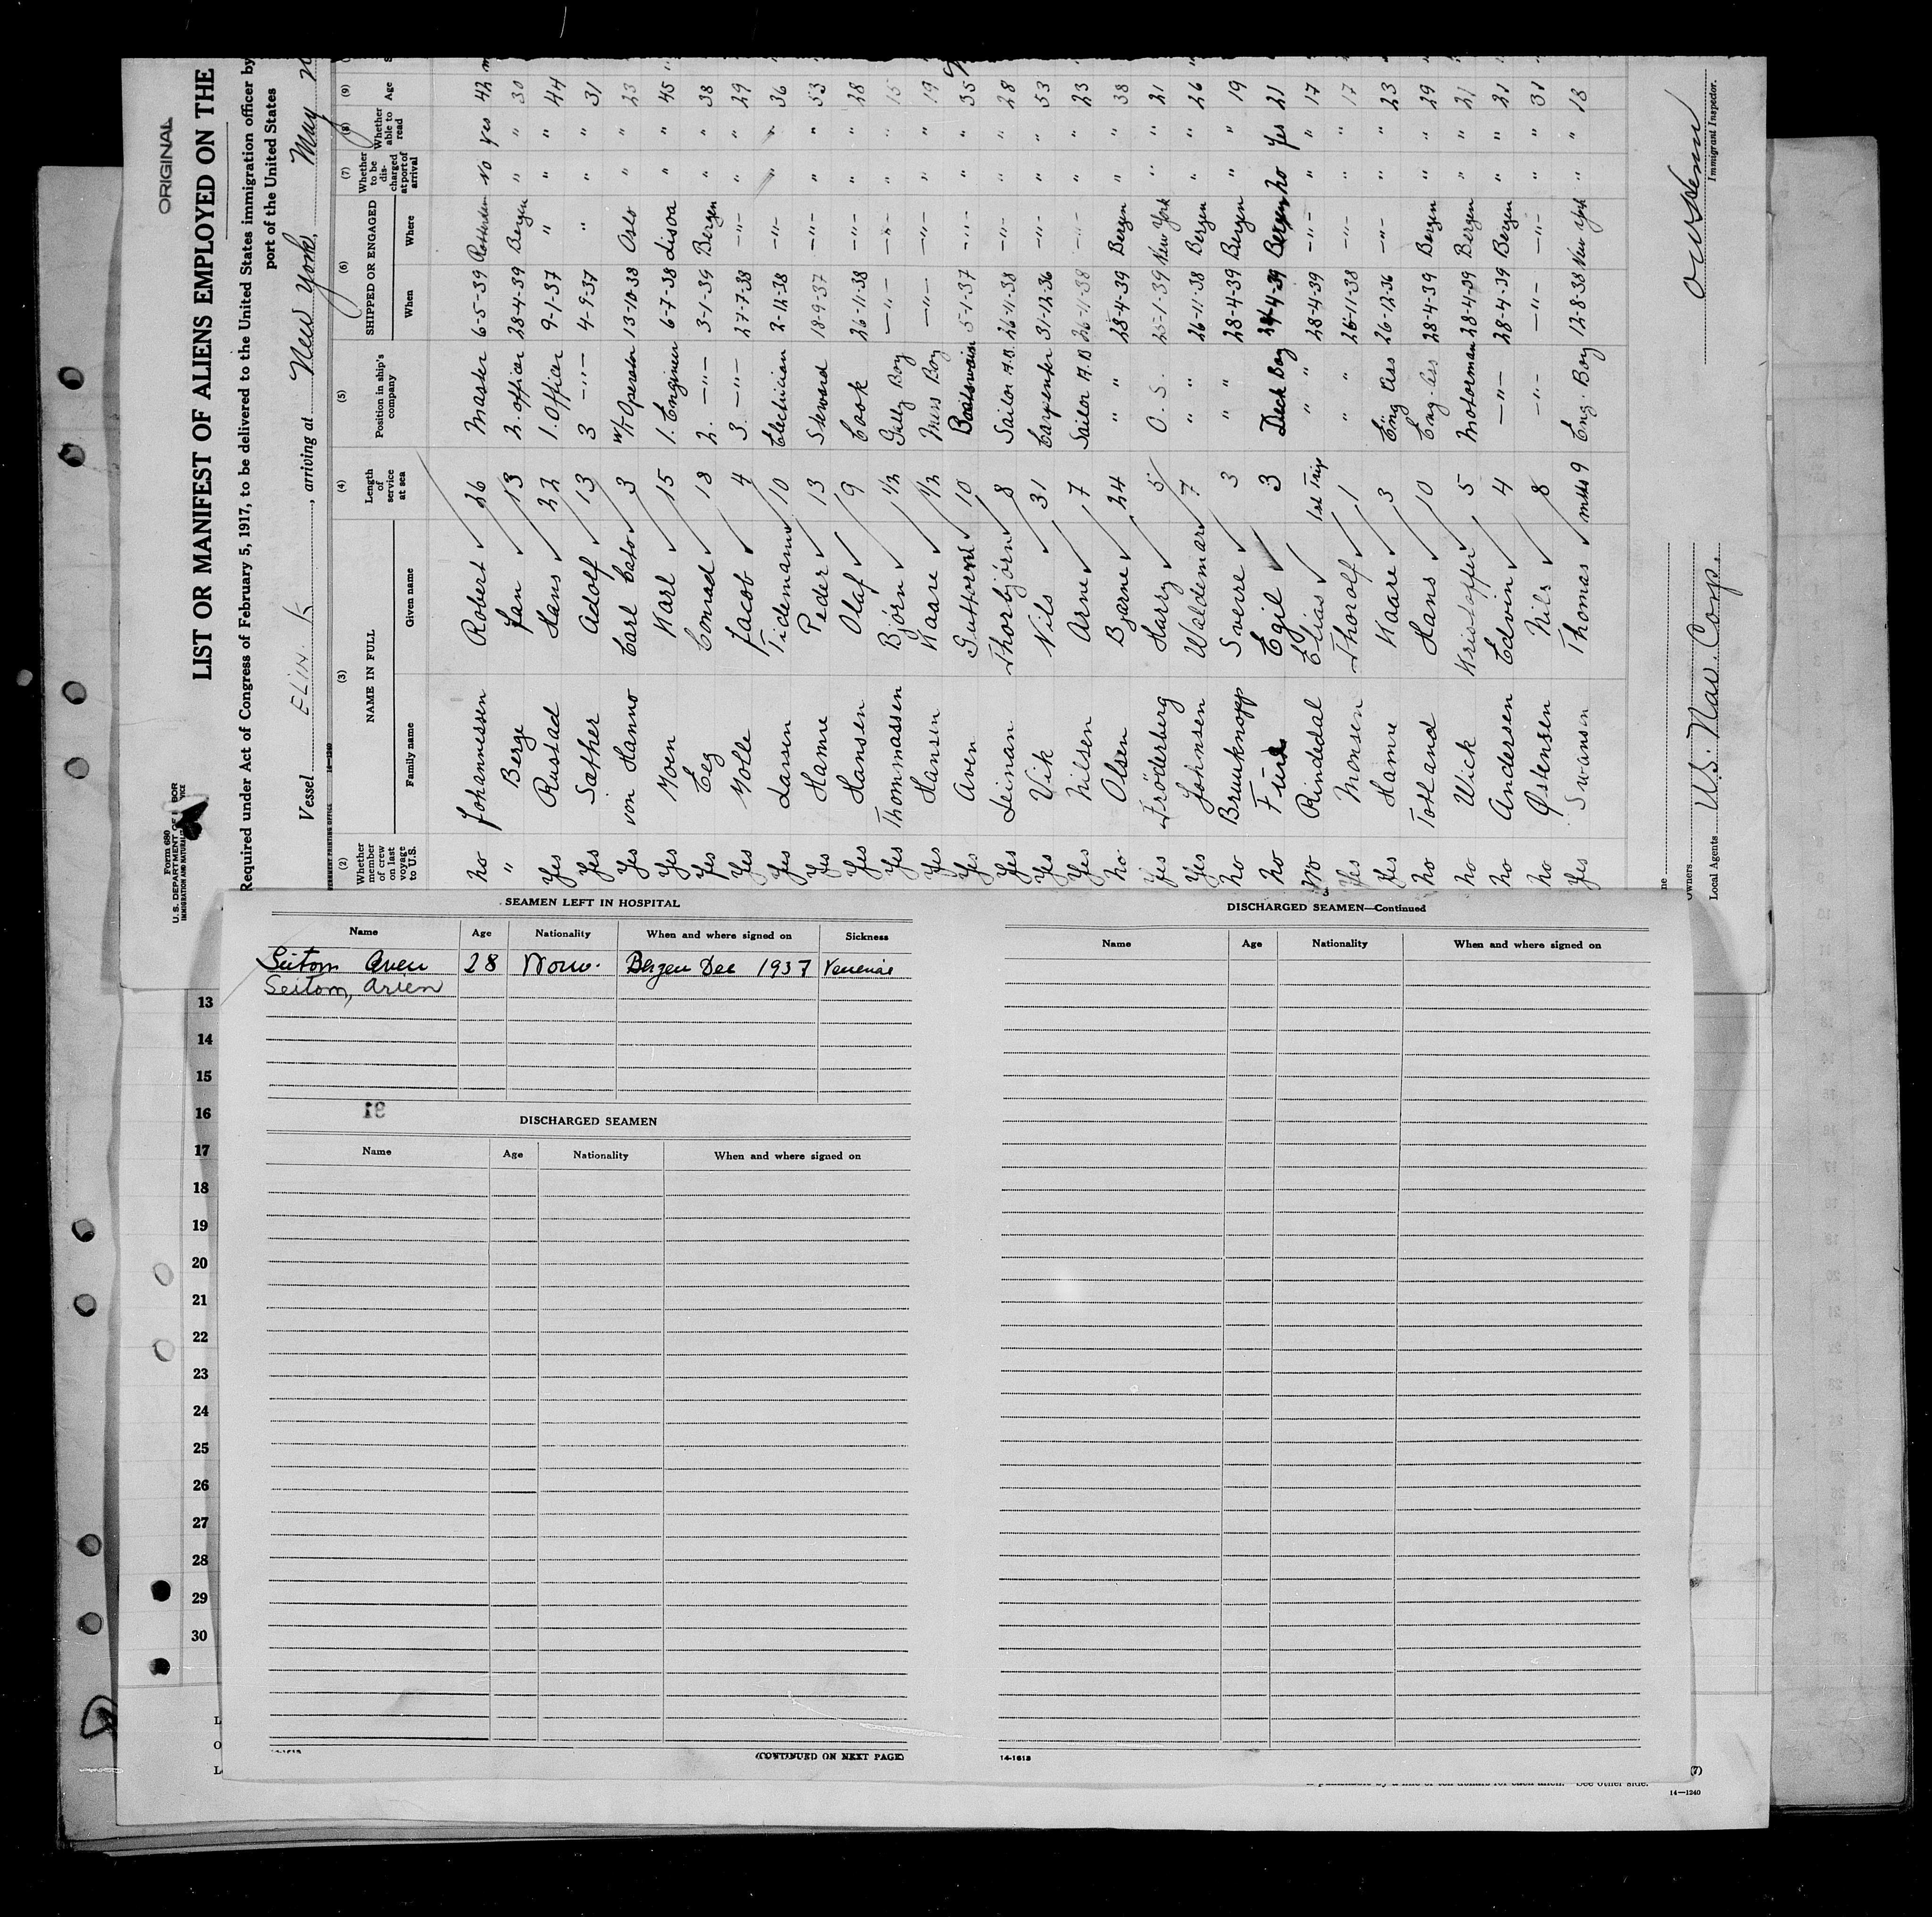 ORIGINAL
Form 680
U. S. DEPARTMENT OF LABOR
IMMIGRATION AND NATURALIZATION SERVICE
LIST OR MANIFEST OF ALIENS EMPLOYED ON THE
Required under Act of Congress of February 5, 1917, to be delivered to the United States immigration officer by
port of the United States
Vessel ELIN K , arriving at New York, May
(2) (3) (4) (5) (6) (7) (8) (9)
Whether member of crew on last voyage to U.S. NAME IN FULL Family name Given name Length of service at sea Position in ship's company SHIPPED OR ENGAGED When Where Whether to be discharged at port of arrival Whether able to read Age
no Johannessen Robert 26 Master 6-5-39 Rotterdam No yes 42
" Berge Jan 13 2. Officer 28-4-39 Bergen " " 30
Yes Rustad Hans 22 1. Officer 9-1-37 " " " 44
Yes Sæther Adolf 13 3 -"- 4-9-37 " " " 31
Yes von Hanno Carl Cato 3 W/T Operator 13-10-38 Oslo " " 23
Yes Moen Karl 15 1. Engineer 6-7-38 Lisboa " " 45
Yes Eeg Conrad 18 2. -"- 3-1-39 Bergen " " 38
Yes Molle Jacob 4 3. -"- 27-7-38 -"- " " 29
Yes Larsen Tidemann 10 Electrician 2-12-38 -"- " " 36
Yes Hanne Peder 13 Steward 18-9-37 -"- " " 53
Yes Hansen Olaf 9 Cook 26-11-38 -"- " " 28
Yes Thommassen Bjørn 1/2 Gally Boy -"- -"- " " 15
Yes Hansen Kaare 1/2 Mess Boy -"- -"- " " 19
Yes Aven Guttorm 10 Boatswain 5-1-37 -"- " " 35
Yes Leinan Thorbjørn 8 Sailor A.B. 26-11-38 -"- " " 28
Yes Vik Nils 31 Carpenter 31-12-36 -"- " " 53
Yes Nilsen Arne 7 Sailor A.B 26-11-38 -"- " " 23
no Olsen Bjarne 24 " " 28-4-39 Bergen " " 38
Yes Frøderberg Harry 5 O. S. 25-1-39 New York " " 21
Yes Johnsen Waldemar 7 " " 26-11-38 Bergen " " 26
no Bruuknopp Sverre 3 " " 28-4-39 Bergen " " 19
no Egil 3 Deck Boy 28-4-39 Bergen no Yes 21
No Rindedal Elias 1st Trip " " 28-4-39 -"- " " 17
Yes Monsen Thorolf 1 " 26-11-38 -"- " " 17
Yes Hanne Kaare 3 Eng Ass 26-12-36 -"- " " 23
no Totland Hans 10 Eng. Ass 28-4-39 Bergen " " 29
no Wick Kristoffer 5 Motorman 28-4-39 Bergen " " 21
no Andersen Edvin 4 -"- 28-4-39 Bergen " " 21
no Østensen Nils 8 -"- -"- -"- " " 31
Yes Swansen Thomas mths 9 Eng. Boy 12-8-38 New York " " 18
Owners
Local Agents U.S. Nav. Corp.
Immigrant Inspector.
SEAMEN LEFT IN HOSPITAL
Name Age Nationality When and where signed on Sickness
Seitom Aven 28 Norw. Bergen Dec 1937
Seitom, Arien
DISCHARGED SEAMEN
Name Age Nationality When and where signed on
(CONTINUED ON NEXT PAGE)
DISCHARGED SEAMEN—Continued
Name Age Nationality When and where signed on
14-1618
13
14
15
16
17
18
19
20
21
22
23
24
25
26
27
28
29
30
See other side.
14—1240